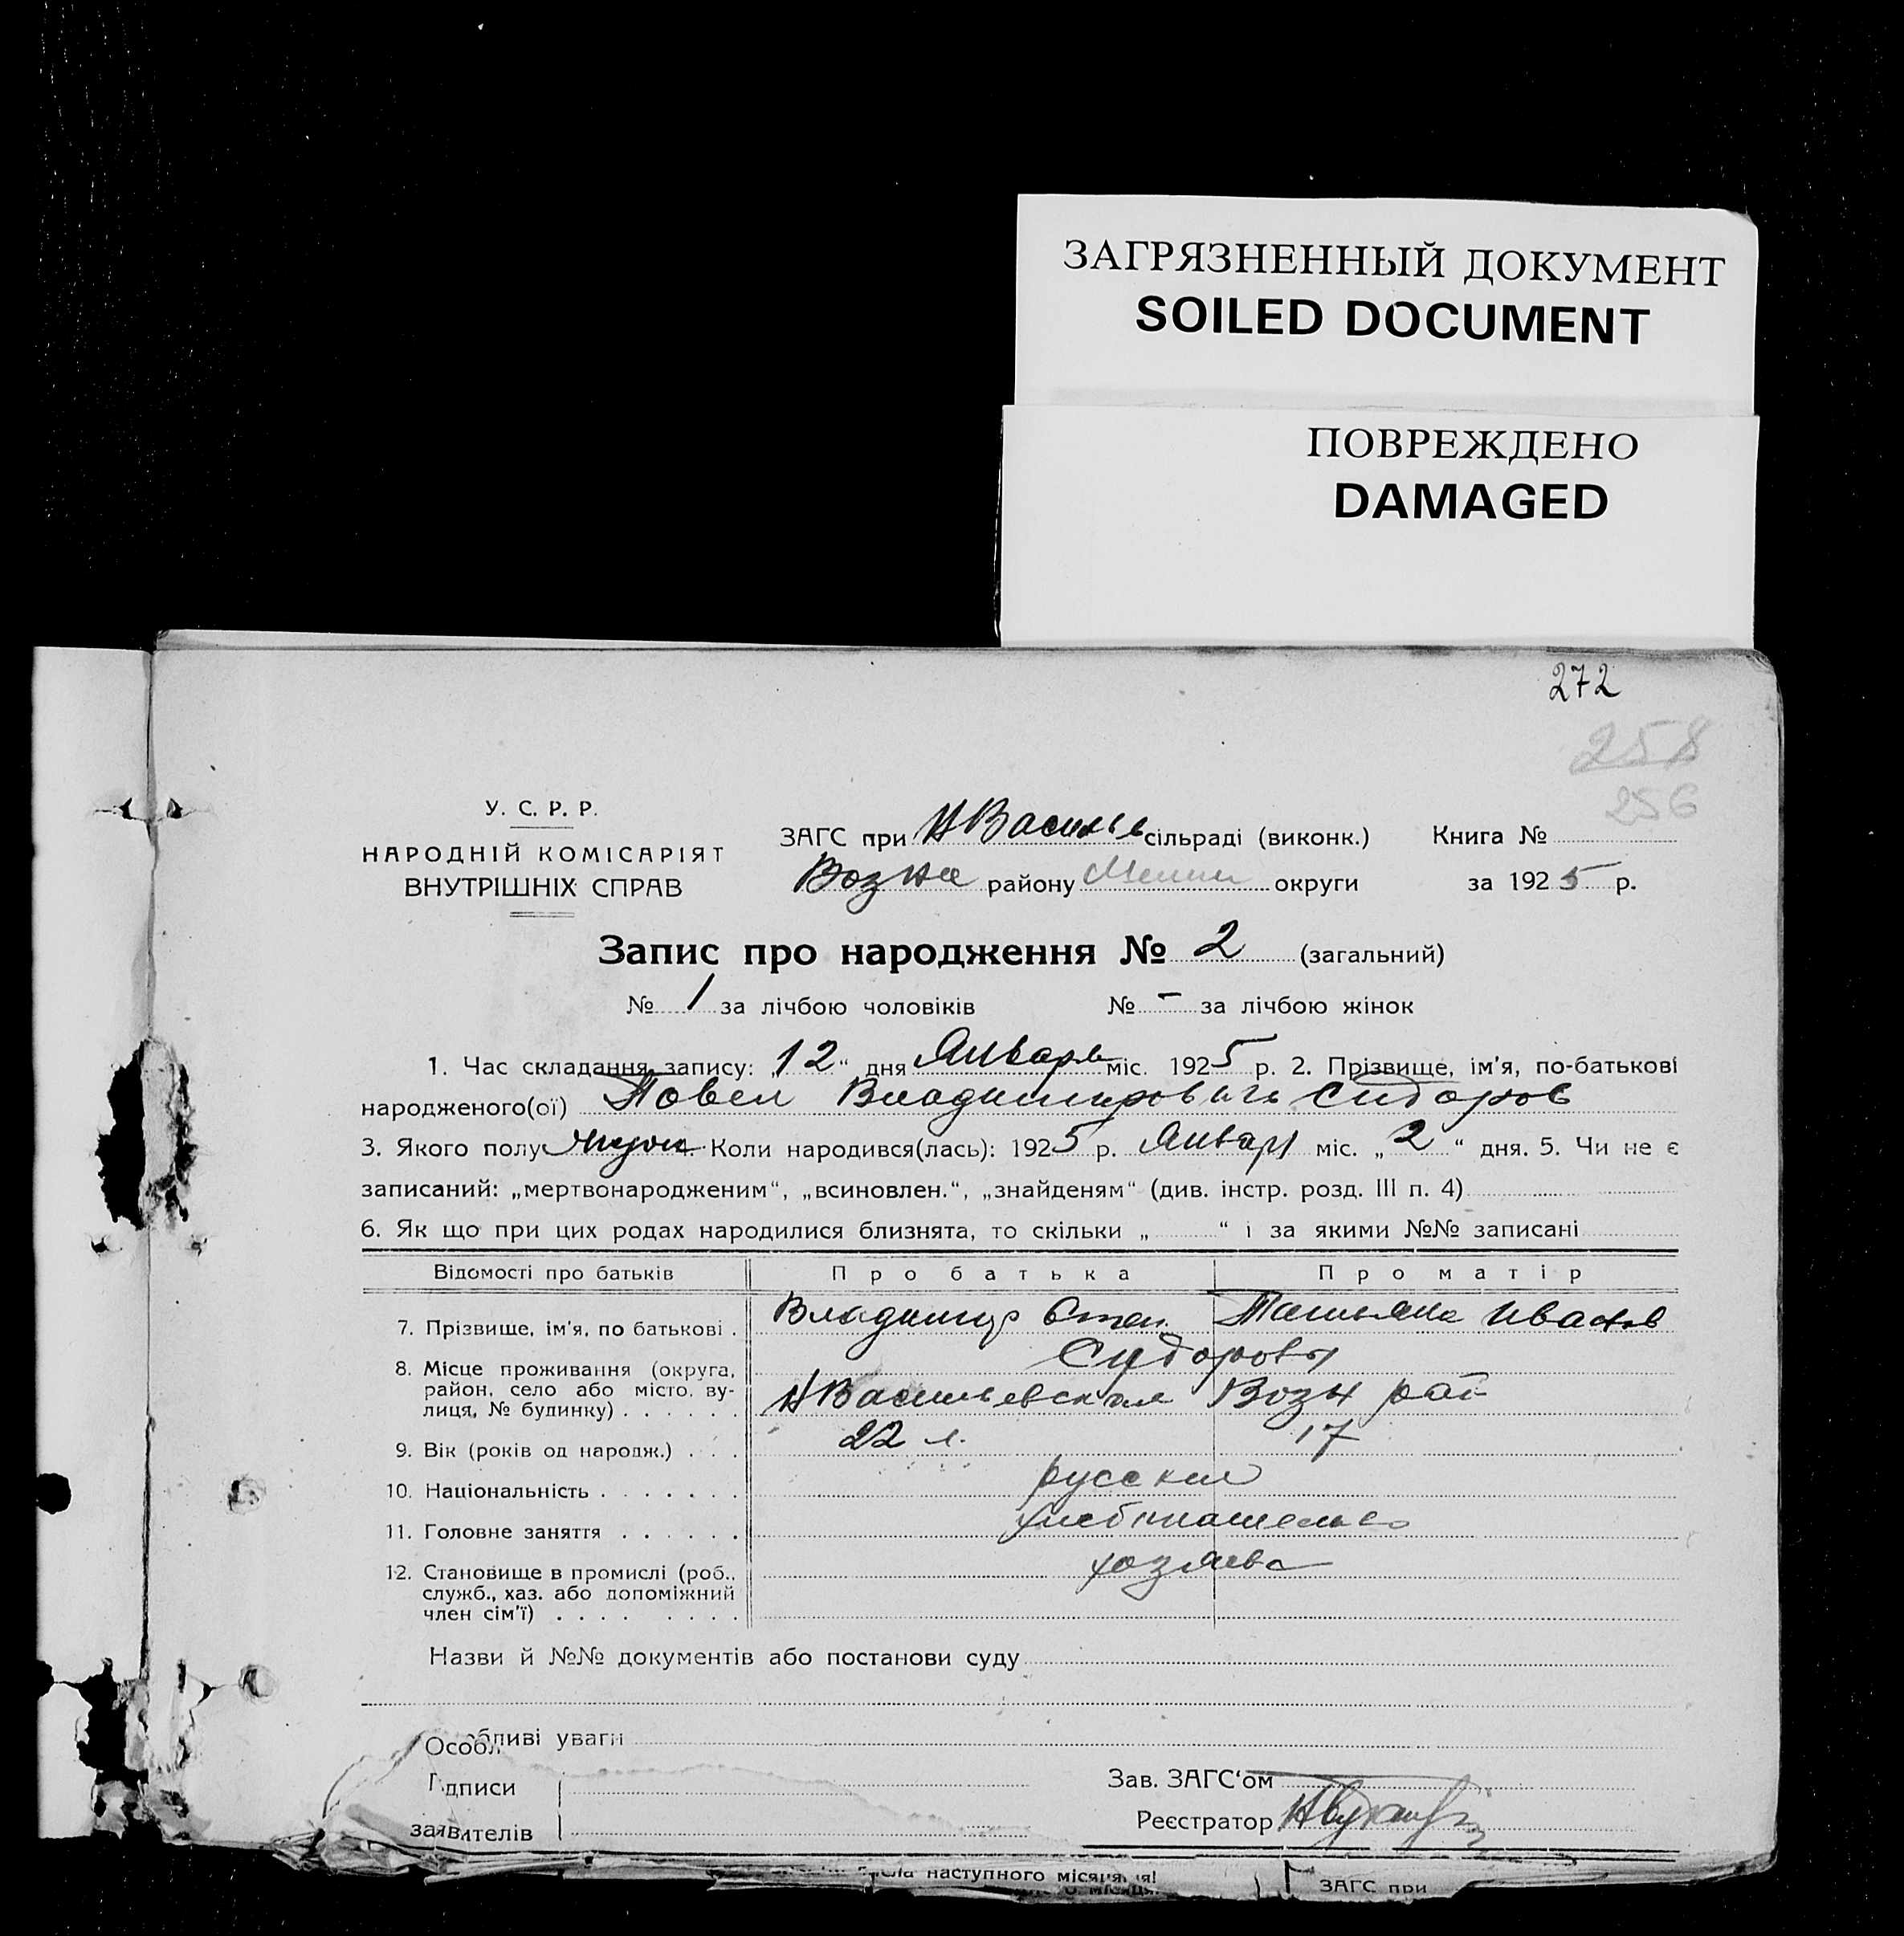 ЗАГРЯЗНЕННЫЙ ДОКУМЕНТ
SOILED DOCUMENT
ПОВРЕЖДЕНО
DAMAGED
272
258
256
У. С. Р. Р.
НАРОДНІЙ КОМІСАРІЯТ
ВНУТРІШНІХ СПРАВ
ЗАГС при НВасильев сільраді (виконк.) Книга №
Возне району округи за 1925 р.
Запис про народження № 2 (загальний)
№ 1 за лічбою чоловіків № - за лічбою жінок
1. Час складання запису: „12“ дня Января міс. 1925 р. 2. Прізвище, ім'я, по-батькові
народженого(ої) Повел Владимирович Сидоров
3. Якого полу муж. Коли народився(лась): 1925 р. Январ міс. „2“ дня. 5. Чи не є
записаний: „мертвонародженим“, „всиновлен.“, „знайденям“ (див. інстр. розд. III п. 4)
6. Як що при цих родах народилися близнята, то скільки „ “ і за якими №№ записані
Відомості про батьків Про батька Про матір
7. Прізвище, ім'я, по батькові . Владимир Степ. Татьяна Иванов
Сидоровы
8. Місце проживання (округа, район, село або місто, ву-
лиця, № будинку) . . . . . . НВасильевская Возн рай
9. Вік (років од народж.) . . . 22 л. 17
10. Національність . . . . . . . русская
11. Головне заняття . . . . . . хлебопашество
12. Становище в промислі (роб., хозяева
служб., хаз. або допоміжний
член сім'ї) . . . . . . . .
Назви й №№ документів або постанови суду
Особливі уваги
Підписи Зав. ЗАГС'ом
заявителів Реєстратор
наступного місяця!
ЗАГС при